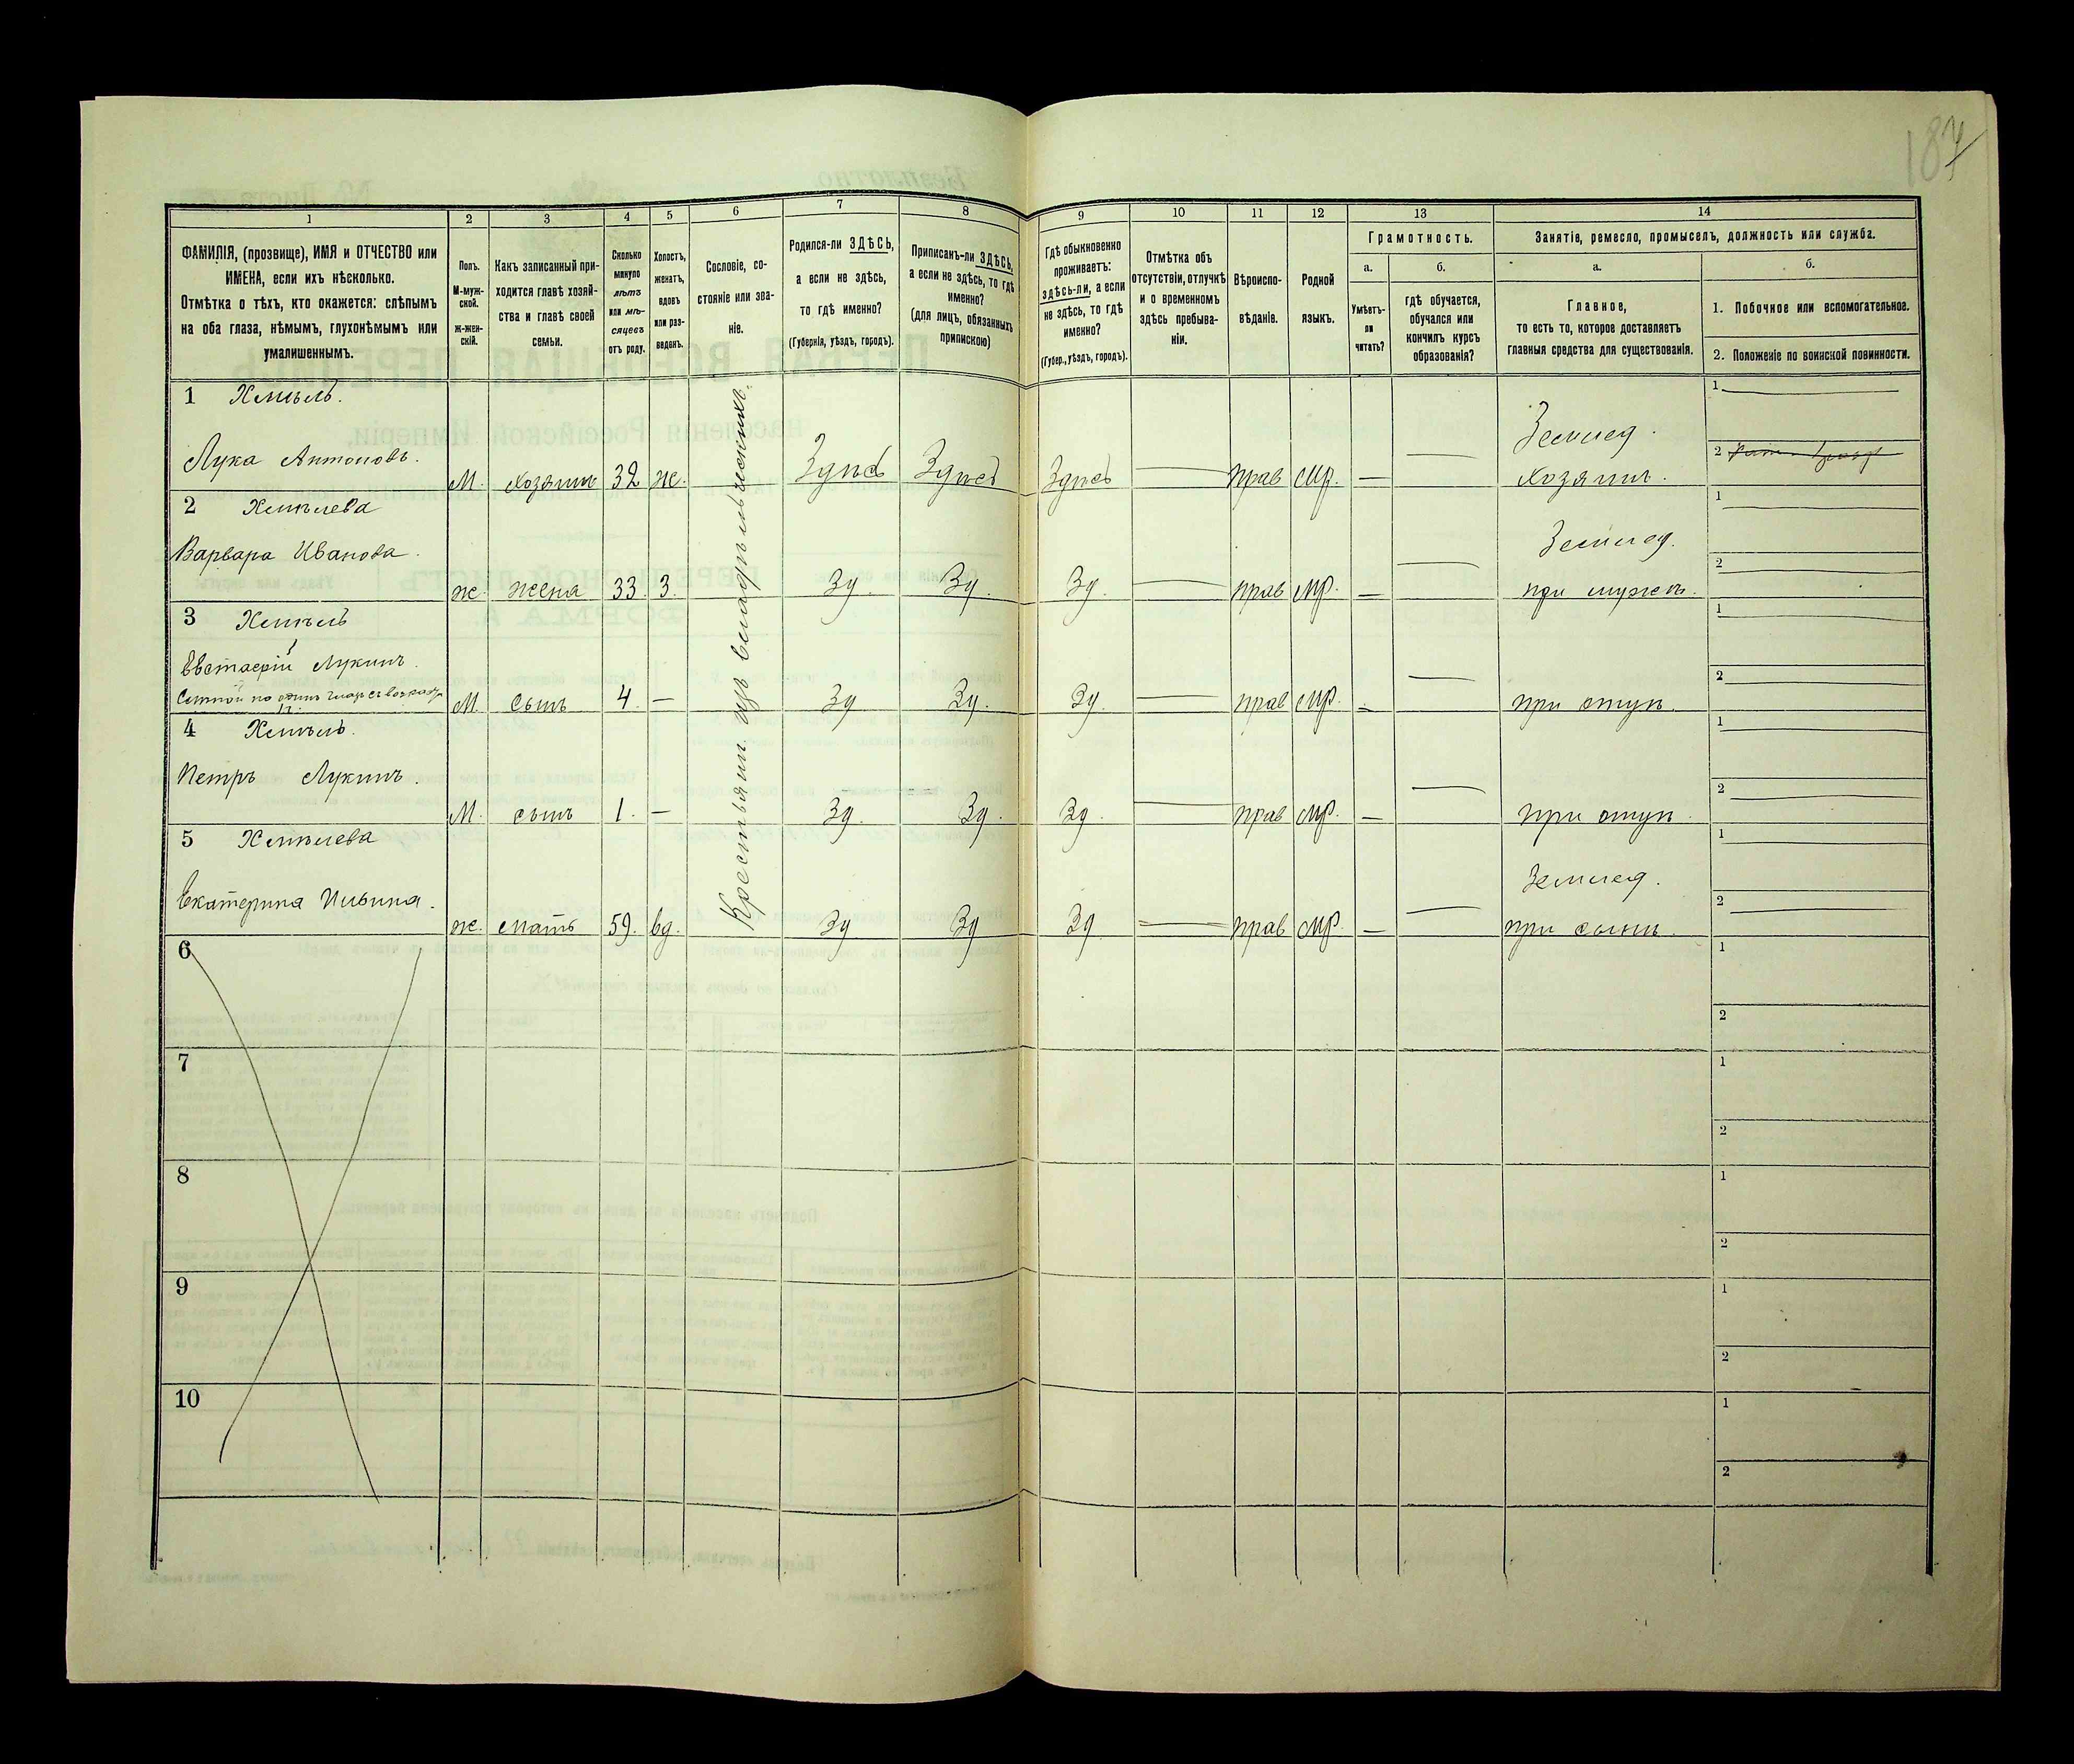 187
1
2
3
4
5
6
7
8
9
10
11
12
13
14
ФАМИЛІЯ, (прозвище), ИМЯ и ОТЧЕСТВО или
ИМЕНА, если ихъ нѣсколько.
Отмѣтка о тѣхъ, кто окажется: слѣпымъ
на оба глаза, нѣмымъ, глухонѣмымъ или
умалишеннымъ.
Полъ.
М-муж-
ской.
Ж-жен-
скій.
Какъ записанный при-
ходится главѣ хозяй-
ства и главѣ своей
семьи.
Сколько
минуло
лѣтъ
или мѣ-
сяцевъ
отъ роду.
Холостъ,
женатъ,
вдовъ
или раз-
веденъ.
Сословіе, со-
стояніе или зва-
ніе.
Родился-ли ЗДѢСЬ,
а если не здѣсь,
то гдѣ именно?
(Губернія, уѣздъ, городъ).
Приписанъ-ли ЗДѢСЬ,
а если не здѣсь, то гдѣ
именно?
(для лицъ, обязанныхъ
припискою)
Гдѣ обыкновенно
проживаетъ:
здѣсь-ли, а если
не здѣсь, то гдѣ
именно?
(Губер., уѣздъ, городъ).
Отмѣтка объ
отсутствіи, отлучкѣ
и о временномъ
здѣсь пребыва-
ніи.
Вѣроиспо-
вѣданіе.
Родной
языкъ.
Грамотность.
а.
Умѣетъ-
ли
читать?
б.
гдѣ обучается,
обучался или
кончилъ курсъ
образованія?
Занятіе, ремесло, промыселъ, должность или служба.
а.
Главное,
то есть то, которое доставляетъ
главныя средства для существованія.
б.
1. Побочное или вспомогательное.
2. Положеніе по воинской повинности.
Крестьянин изъ владѣльческихъ.
1 Хмѣль.
Лука Антоновъ. М. хозяинъ 32 ж. Здѣсь Здѣсь Здѣсь — прав мр. — —
Землед.
хозяинъ.
1 —
2
2 Хмѣлева
Варвара Иванова. ж. жена 33. З. Зд. Зд. Зд. — прав мр. — —
Землед.
при мужѣ.
1 —
2 —
3 Хмѣль
Евстафій Лукинъ.
М. сынъ 4. — Зд Зд. Зд. — прав мр. — — при отцѣ.
1 —
2 —
4 Хмѣль.
Петръ Лукинъ.
М. сынъ 1. — Зд. Зд. Зд. — прав мр. — — при отцѣ
1 —
2 —
5 Хмѣлева
Екатерина Ильина. ж. мать 59. вд. Зд Зд Зд — прав мр. — —
Землед.
при сынѣ.
1
2 —
6
1
2
7
1
2
8
1
2
9
1
2
10
1
2